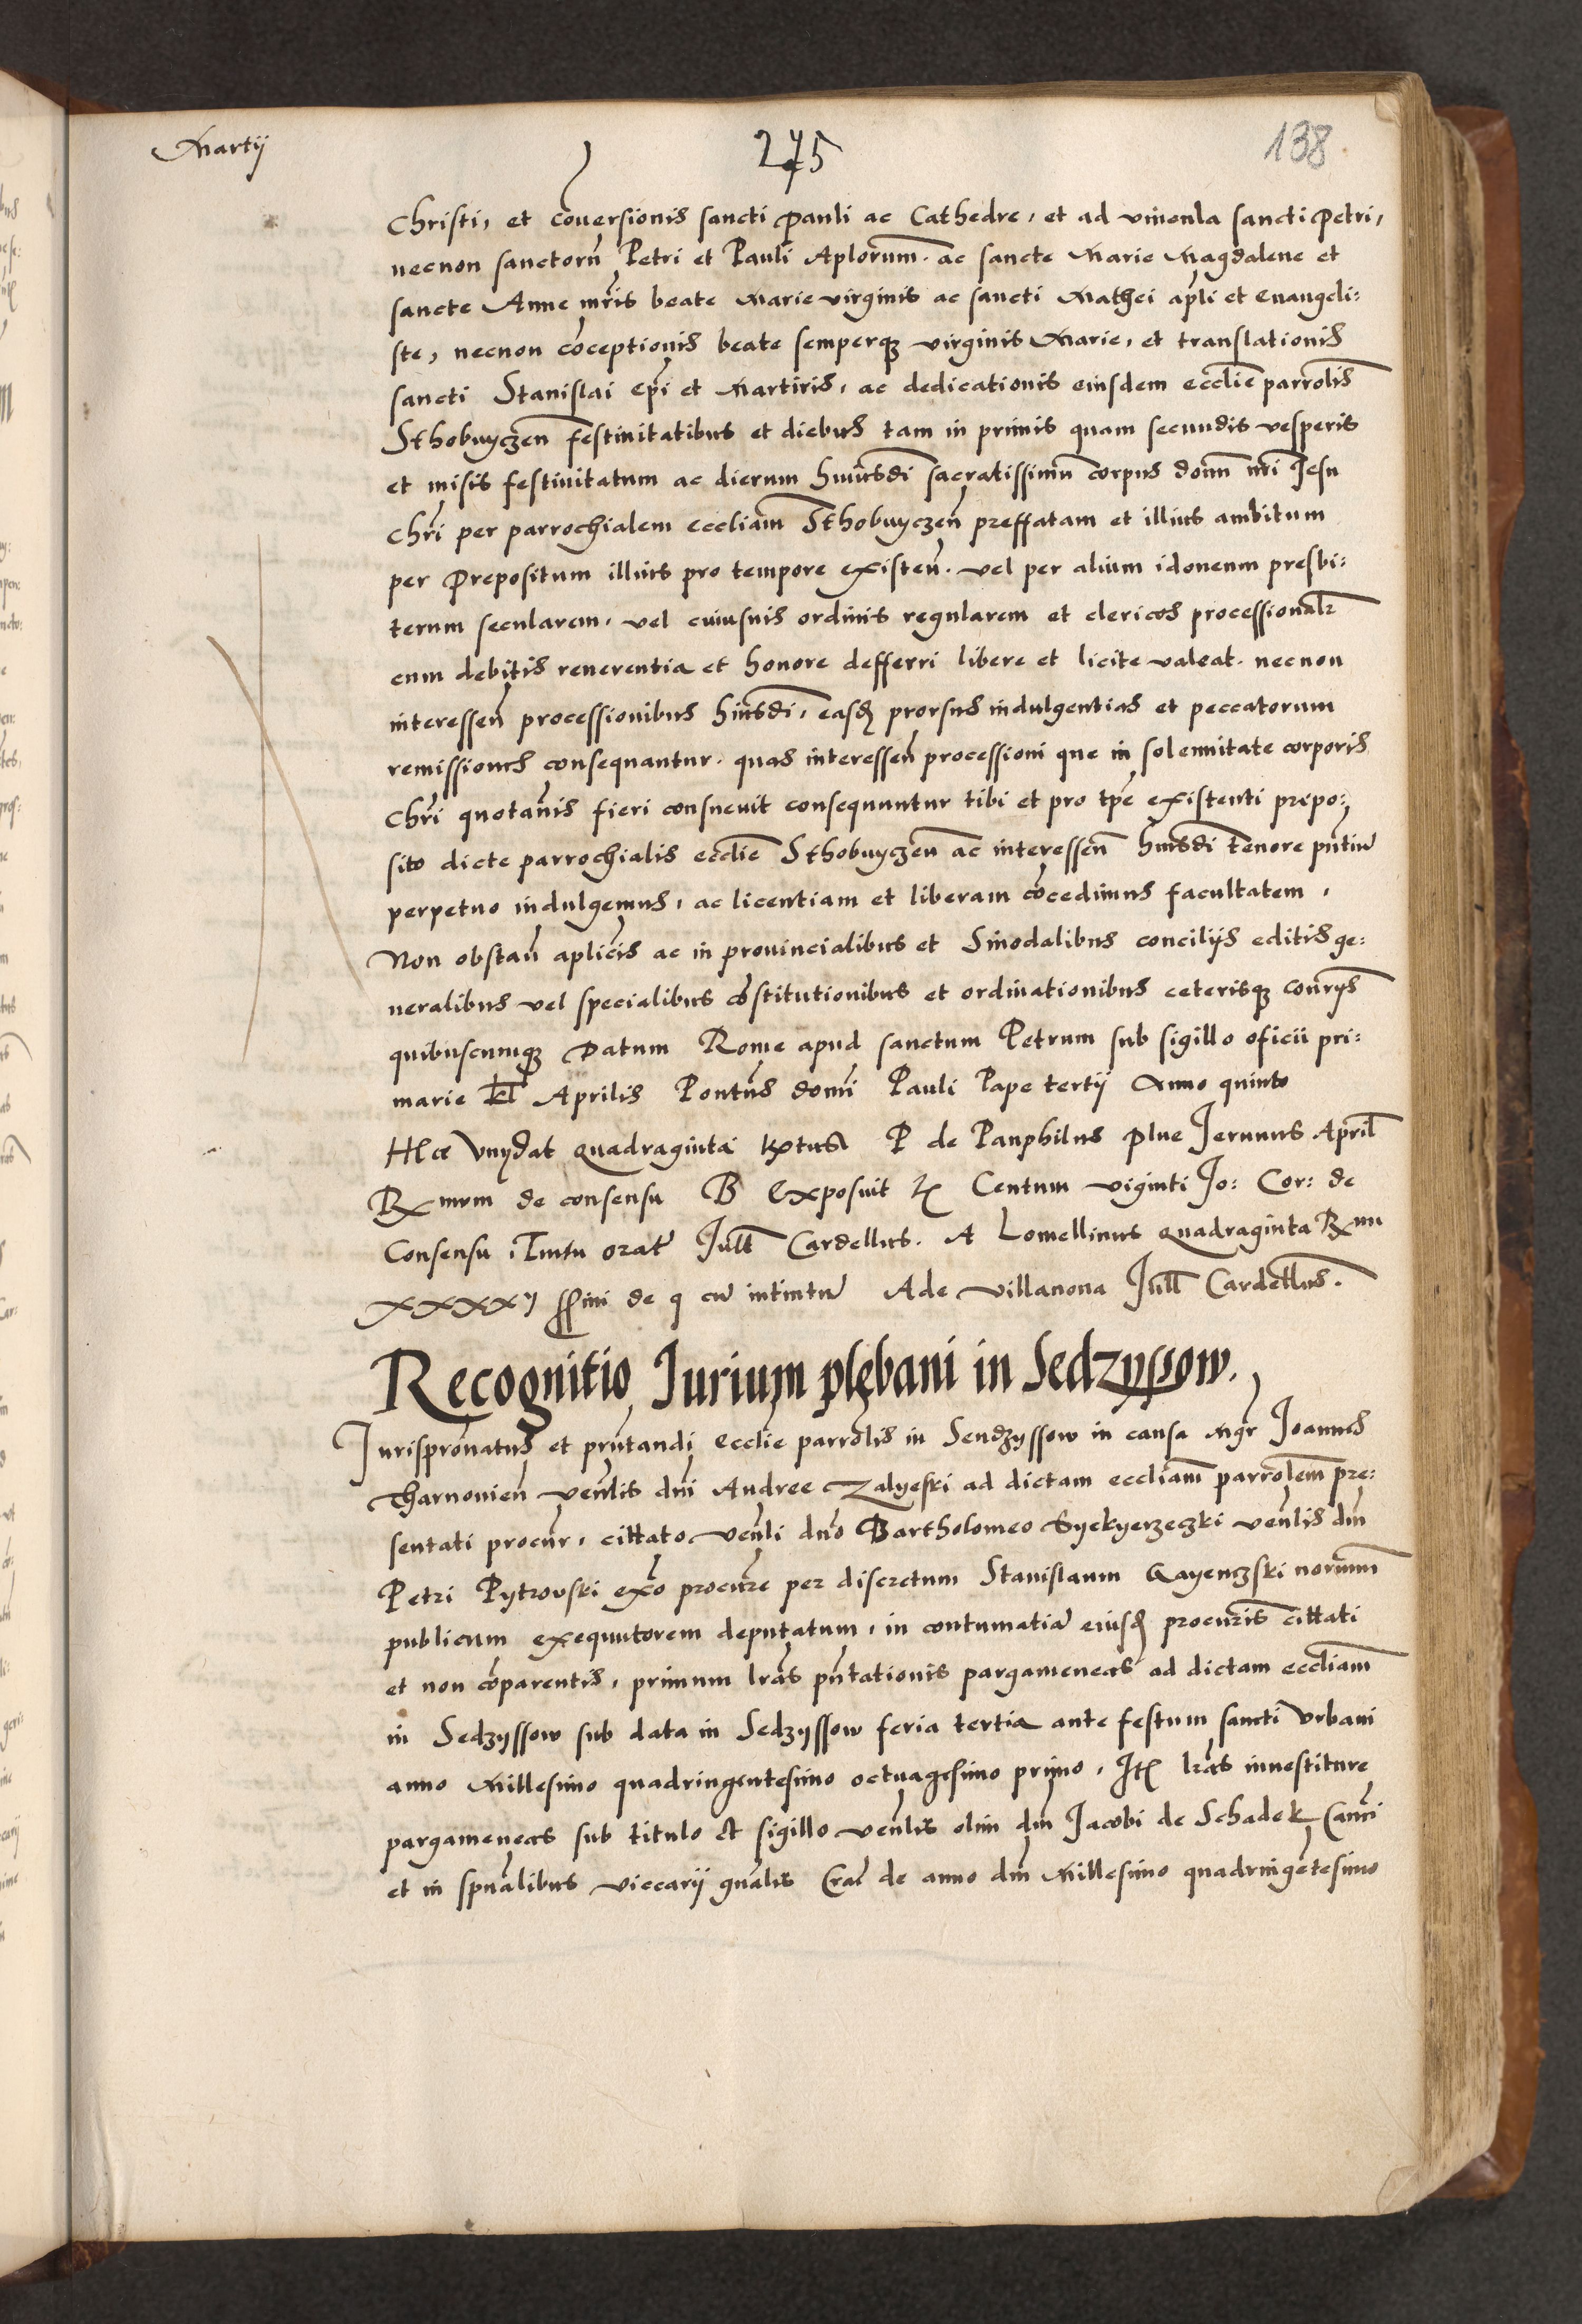 Martij
275
138
Christi, et cōuersionis sancti Pauli ac Cathedre, et ad vincula sancti Petri,
necnon sanctorū Petri et Pauli Aplorum. ac sancte Marie Magdalene et
sancte Anne mr̄is beate Marie virginis ac sancti Mathei apl̄i et euangeli:
ste, necnon cōceptionis beate semperqȝ virginis Marie, et translationis
sancti Stanislai ep̄i et Martiris, ac dedicationis eiusdem eccl̄ie parrol̄is
Sthobnyczen̄ festiuitatibus et diebus tam in primis quam secundis vesperis
et misis festiuitatum ac dierum huiusdi sacratissimū corpus dom̄ nr̄i Jesu
Chr̄i per parrochialem eccl̄iam Sthobnyczen̄ preffatam et illius ambitum
per Prepositum illius pro tempore existen̄. vel per alium idoneum presbi:
terum secularem, vel cuiusuis ordinis regularem et clericos processionalr̄
cum debitis reuerentia et honore defferri libere et licite valeat. necnon
interessen̄ processionibus hiusdī, easd prorsus indulgentias et peccatorum
remissiones consequantur. quas interessen̄ processioni que in solennitate corporis
Chr̄i quotannis fieri consueuit consequuntur tibi et pro tp̄e existenti prepo:
sito dicte parrochialis eccl̄ie Sthobnyczen̄ ac interessen̄ huiusdī tenore pn̄tiū
perpetuo indulgemus, ac licentiam et liberam cōcedimus facultatem,
Non obstan̄ aplicis ac in prouincialibus et Sinodalibus concilijs editis ge:
neralibus vel specialibus cōstitutionibus et ordinationibus ceterisqȝ con̄rijs
quibuscumqȝ Datum Rome apud sanctum Petrum sub sigillo oficii pri:
marie kl Aprilis Pontus domī Pauli Pape tertij Anno quinto
quadraginta P de Pamphilus April
de consensu B Exposuit Centum viginti Jo: Cor: de
Consensu Jull̄ Cardellus. A Lomellinus quadraginta
xxxxy de A de Villanoua Jull̄ Cardellus.
Recognitio Jurium plebani in Sedzyssow.
Jurispronatus et prn̄tandi eccl̄ie parrol̄is in Sendzyssow in causa mgr̄ Joannis
Tharnouien̄ ven̄lis dn̄i Andree Zalyeski ad dictam eccl̄iam parrol̄em pre:
sentati procur̄, cittato ven̄li dn̄o Bartholomeo Syekyerzeczki ven̄lis dn̄i
Petri Pytrovski ex̄o procur̄e per discretum Stanislaum Gayenczski norium
publicum exequutorem deputatum, in contumatiā eiusd procuris cittati
et non cōparentis, primum lr̄as pn̄tationis pargameneas ad dictam eccl̄iam
in Sedzyssow sub data in Sedzyssow feria tertia ante festum sancti Vrbani
anno Millesimo quadringentesimo octuagesimo primo, Jt lr̄as inuestiture
pargameneas sub titulo et sigillo ven̄lis olim dn̄i Jacobi de Schadek Canci
et in spūalibus viccarij gn̄alis Crac̄ de anno dn̄i Millesimo quadringētesimo